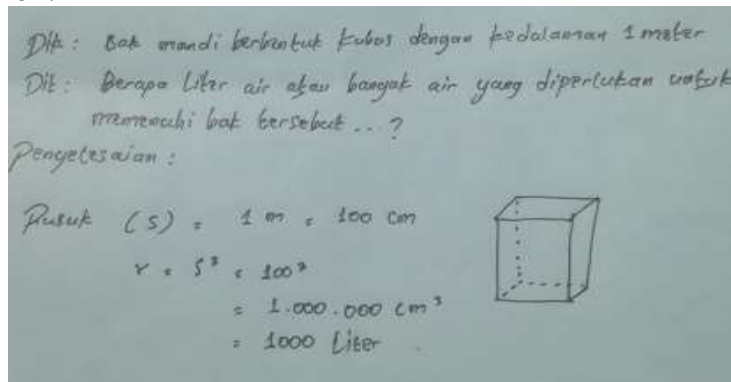 Dik : Bak mandi berbentuk kubus dengan kedalaman 1 meter
Dit : Berapa Liter air atau banyak air yang diperlukan untuk
memenuhi bak tersebut ... ?
Penyelesaian :
Rusuk (S) = 1 m = 100 cm
V = S³ = 100³
= 1.000.000 cm³
= 1000 Liter